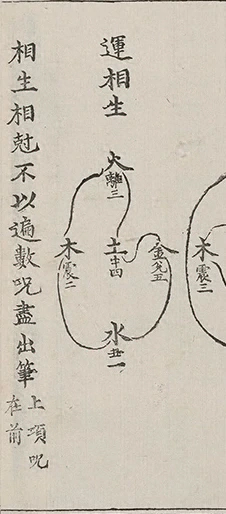 木震三
運相生
火離三
金兌五
土中四
水一
木震二
相生相尅不以遍數呪盡出筆
上項呪
在前